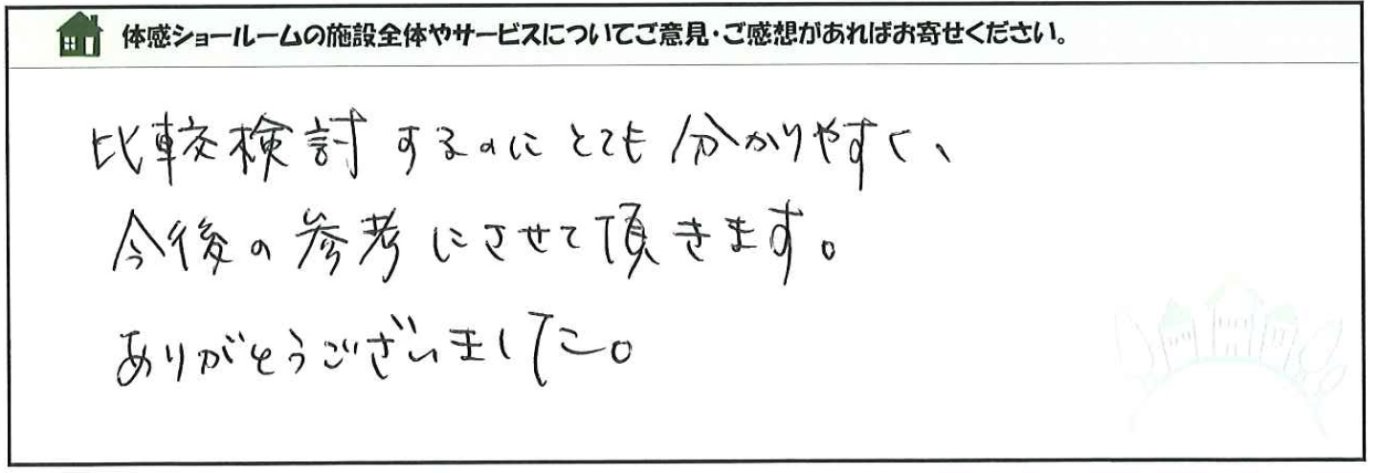 体感ショールームの施設全体やサービスについてご意見・ご感想があればお寄せください。
比較検討するのにとても分かりやすく、
今後の参考にさせて頂きます。
ありがとうございました。